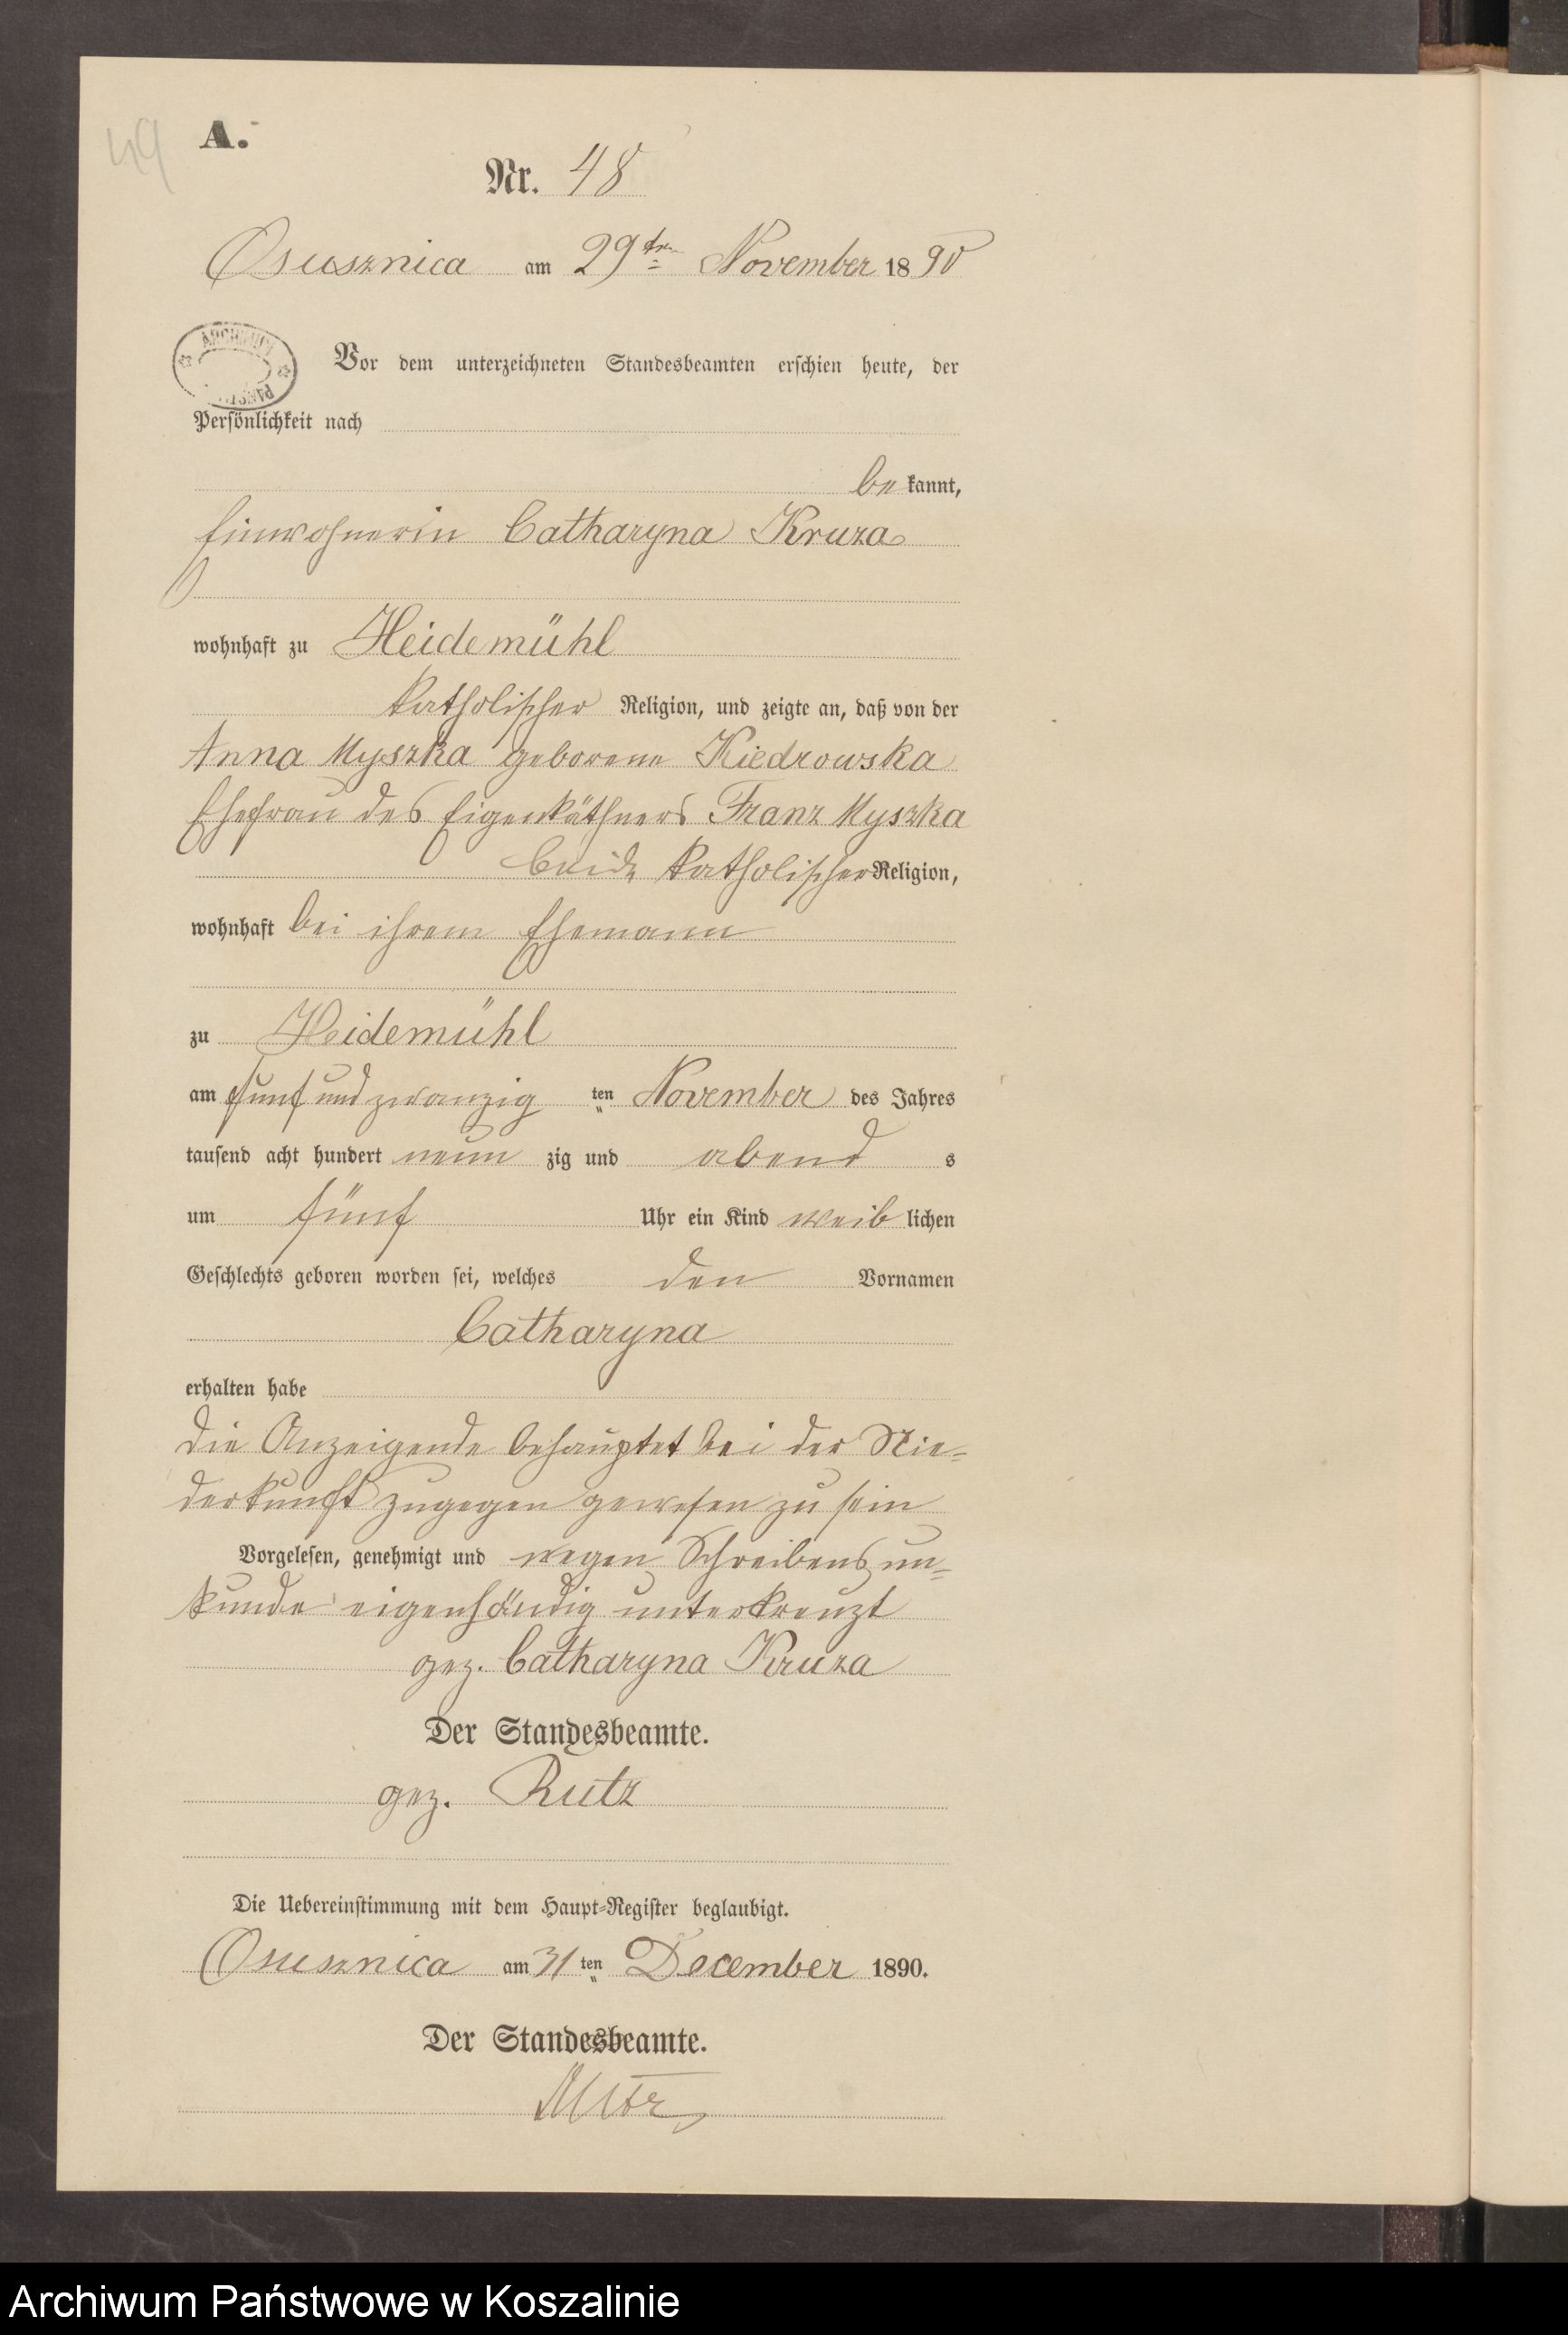 49
A.
Nr. 48
Osusznica am 29ten November 1890
ARCHIWUM
PAŃSTW
Vor dem unterzeichneten Standesbeamten erschien heute, der
Persönlichkeit nach
bekannt,
Einwohnerin Catharyna Kruza
wohnhaft zu Heidemühl
katholischer Religion, und zeigte an, daß von der
Anna Myszka geborene Kiedrowska
Ehefrau des Eigenkäthners Franz Myszka
beide katholischer Religion,
wohnhaft bei ihrem Ehemann
zu Heidemühl
am fünf und zwanzig ten November des Jahres
tausend acht hundert neun zig und abend s
um fünf Uhr ein Kind weib lichen
Geschlechts geboren worden sei, welches den Vornamen
Catharyna
erhalten habe
die Anzeigende behauptet bei der Nie-
derkunft zugegen gewesen zu sein
Vorgelesen, genehmigt und wegen Schreibensun-
kunde eigenhändig unterkreuzt
gez. Catharyna Kruza
Der Standesbeamte.
gez. Rutz
Die Uebereinstimmung mit dem Haupt-Register beglaubigt.
Osusznica am 31 ten December 1890.
Der Standesbeamte.
Rutz
Archiwum Państwowe w Koszalinie